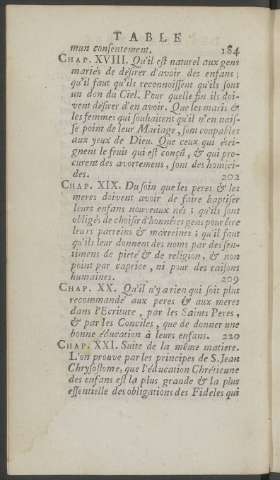 TABLE
mun consentement. 184
CHAP. XVIII. Qu'il est naturel aux gens
mariés de désirer d'avoir des enfans;
qu'il faut qu'ils reconnoissent qu'ils sont
un don du Ciel. Pour quelle fin ils doi-
vent désirer d'en avoir. Que les maris &
les femmes qui souhaitent qu'il n'en nais-
se point de leur Mariage, sont coupables
aux yeux de Dieu. Que ceux qui étei-
gnent le fruit qui est conçû, & qui pro-
curent des avortemens, sont des homici-
des. 202
CHAP. XIX. Du soin que les peres & les
meres doivent avoir de faire baptiser
leurs enfans nouveaux nés; qu'ils sont
obligés de choisir d'honnêtes gens pour être
leurs parreins & marreines; qu'il faut
qu'ils leur donnent des noms par des sen-
timens de pieté & de religion, & non
point par caprice, ni pour des raisons
humaines. 209
CHAP. XX. Qu'il n'y a rien qui soit plus
recommandé aux peres & aux meres
dans l'Ecriture, par les Saints Peres,
& par les Conciles, que de donner une
bonne éducation à leurs enfans. 220
CHAP. XXI. Suite de la même matiere.
L'on prouve par les principes de S. Jean
Chrysostome, que l'éducation Chrétienne
des enfans est la plus grande & la plus
essentielle des obligations des Fideles qui